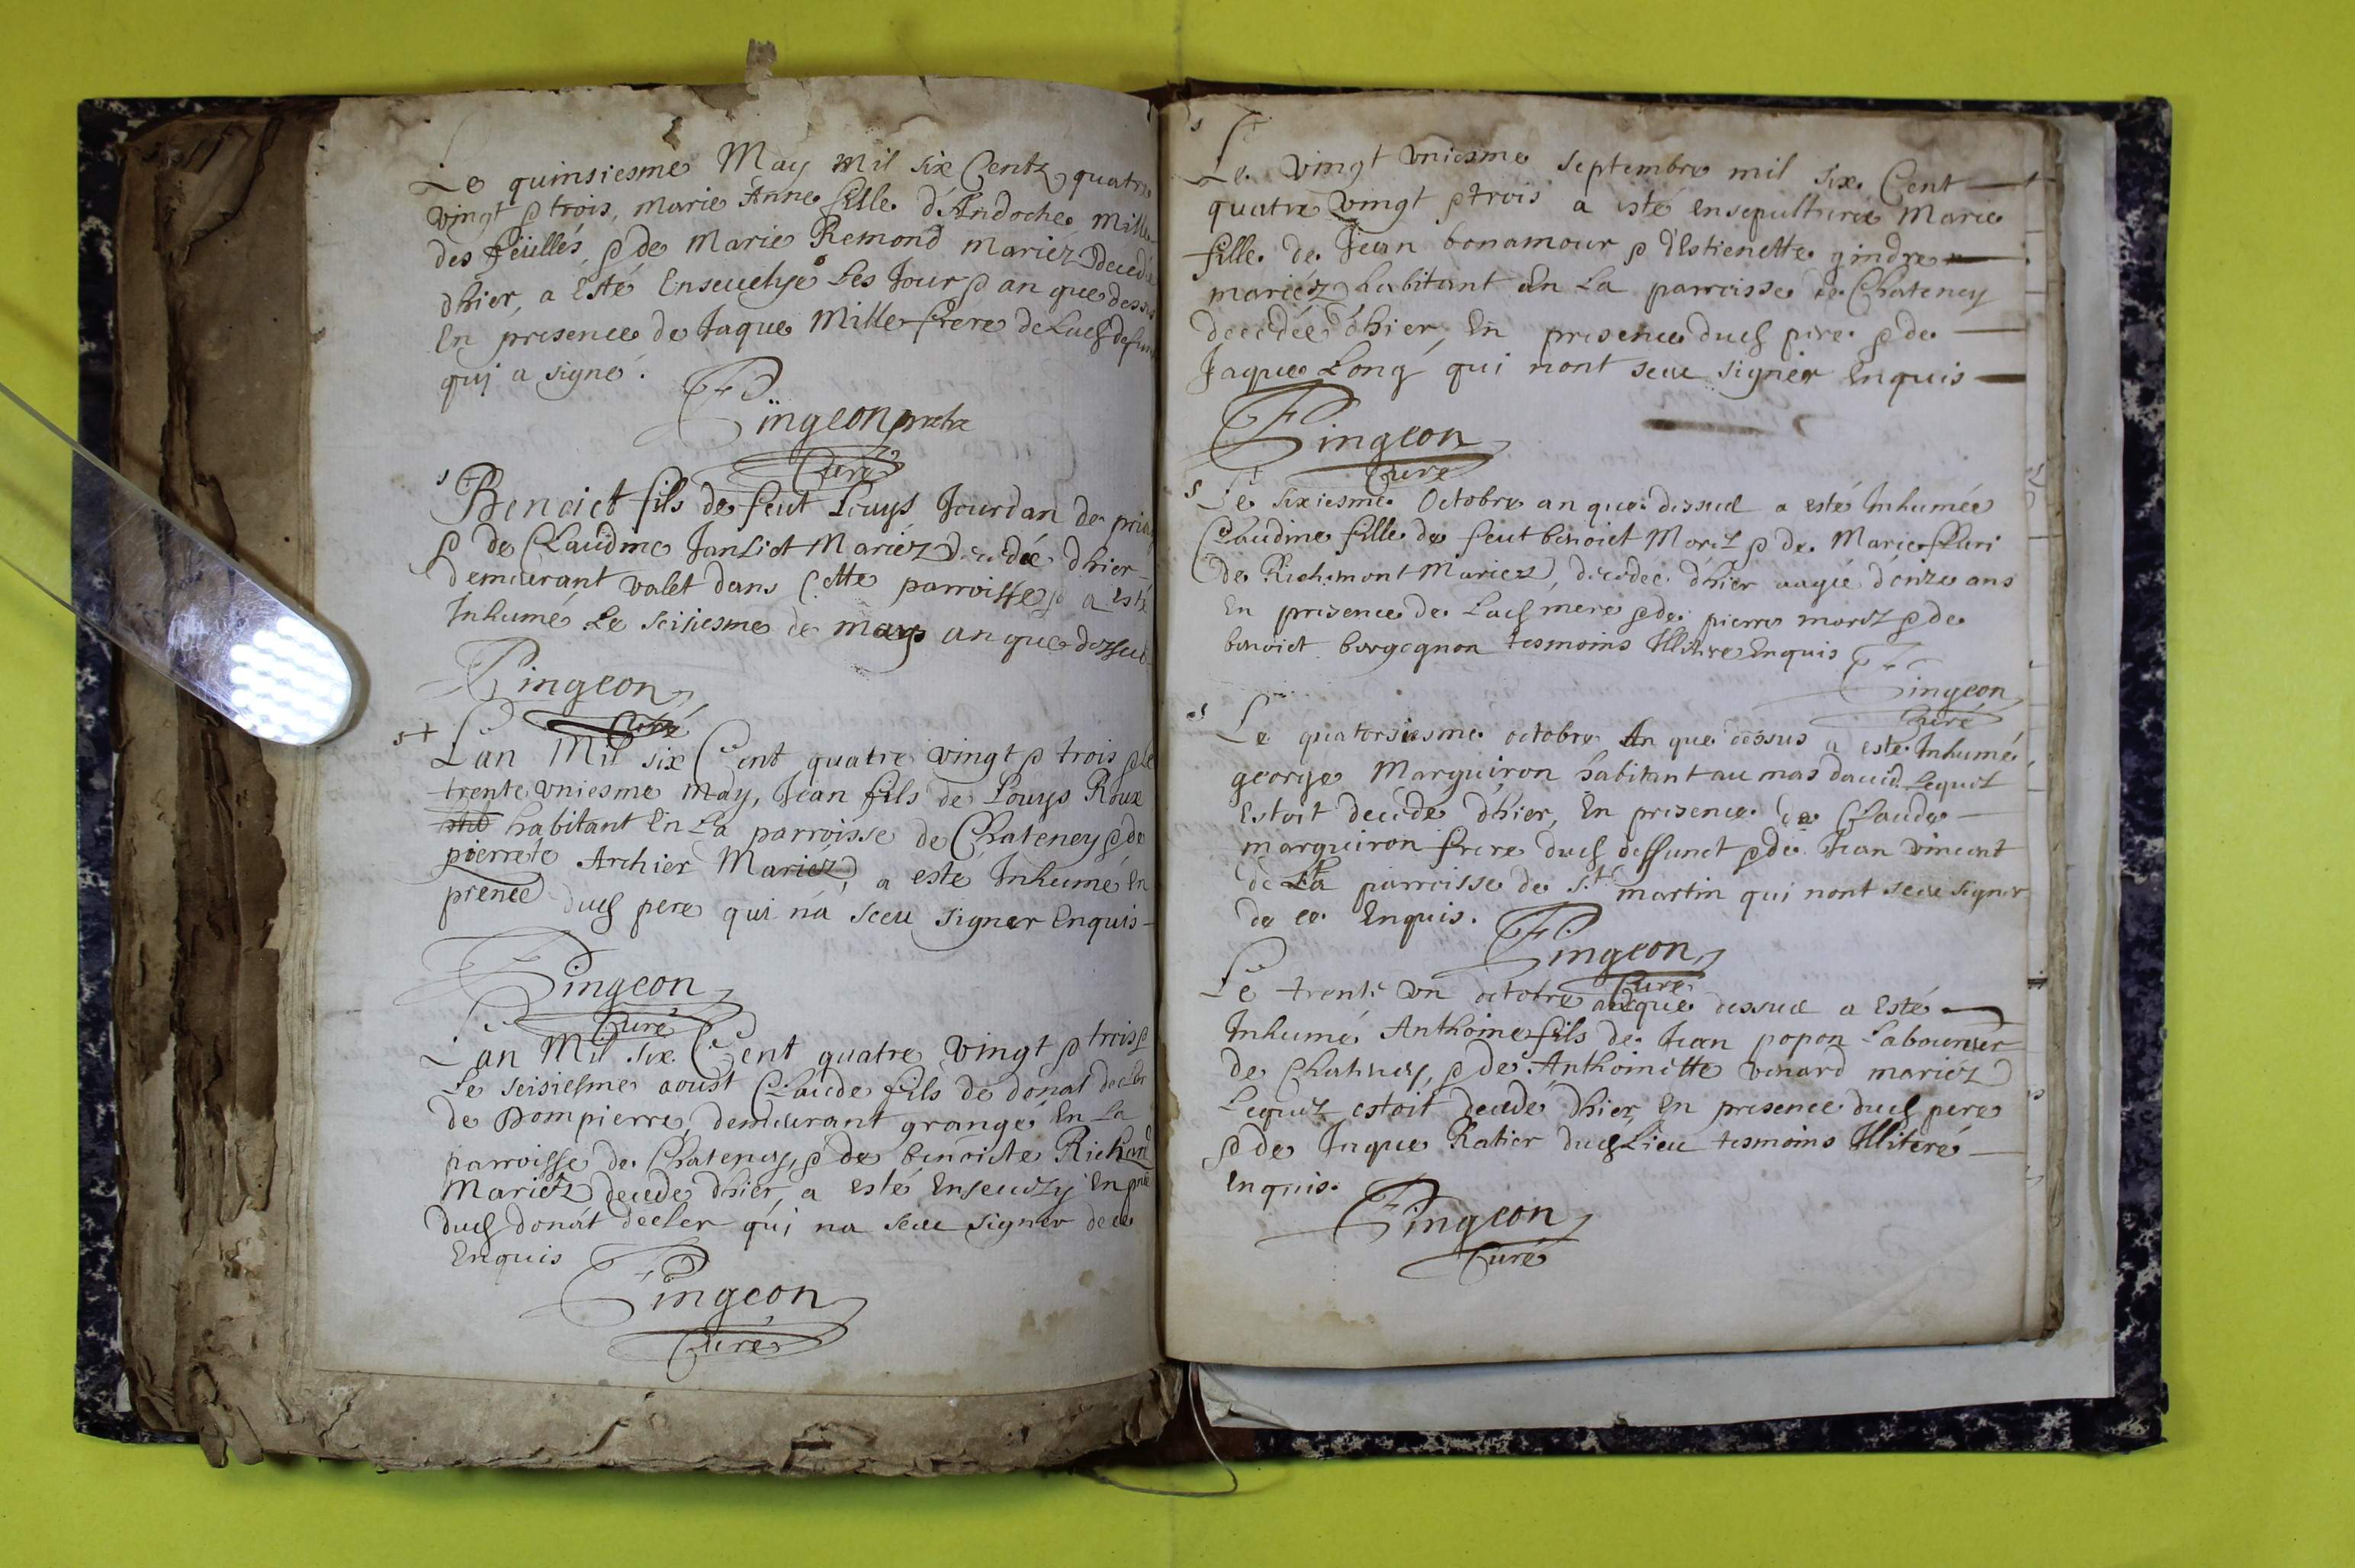 Le quinsiesme May mil six Centz quatre
vingt & trois, marie Anne fille d'Andoche Mille
des feüillés, & de Marie Remond mariez decedé
dhier, a Esté Ensevelye Les Jour & an que dessus
En presence de Jaque Mille frere de Lad
qui a signé.
Pingeon prebtre
Curé
Benoict fils de feut Louys Jourdan de
& de Claudine Janliot Mariéz decedée dhier
demeurant valet dans Cette parroisse & a esté
Inhumé Le seisiesme de may an que dessus
Pingeon
Curé
L'an Mil six Cent quatre vingt & trois & le
trente uniesme may, Jean fils de Louys Roux
habitant En La parroisse de Chateney & de
pierrete Archier Mariez, a esté Inhumé En
pñence dud pere qui nà sceu signer Enquis
Pingeon
Curé
L'an Mil six Cent quatre vingt & trois &
Le seisiesme aoust Claude fils de donat decler
de Dompierre, demeurant grangé En La
parroisse de Chateney, & de benoicte Richard
Mariéz decede dhier, a esté Ensevely En pñce
dud donát decler qui na sceu signer de ce
Enquis
Pingeon
Curé
Le vingt uniesme septembre mil six Cent
quatre vingt & trois a esté ensepulturée Marie
fille de Jean bonamour & d'Estienette gindre
mariéz habitant En La parroisse de Chateney
decedée d'hier, En presence dud pere & de
Jaque Long qui nont sceu signer Enquis
Pingeon
Curé
Le sixiesme Octobre an que dessus a esté Inhumée
Claudine fille de feut benoict Morel & de Marie fluri
de Richemont Mariez, decedée d'hier aagée d'onze ans
En presence de Lad mere & de pierre morel & de
benoict borgognon tesmoins Illitere Enquis
Pingeon
Curé
Le quatorsiesme octobre An que dessus a esté Inhumé
george Marguiron habitant au mas david Lequel
Estoit decede d'hier, En presence de Claude
marguiron frere dud deffunct & de Jean vincent
de La parroisse de S.t martin qui nont sceu signer
de ce Enquis.
Pingeon
Curé
Le trente un octobre an que dessus a Esté
Inhumé Anthoine fils de Jean popon Laboureur
de Chateney, & de Anthoinette venard mariez
Lequel estoit decedé dhier En presence dud pere
& de Jaque Ratier dud Lieu tesmoins Illiteré
Enquis.
Pingeon
Curé